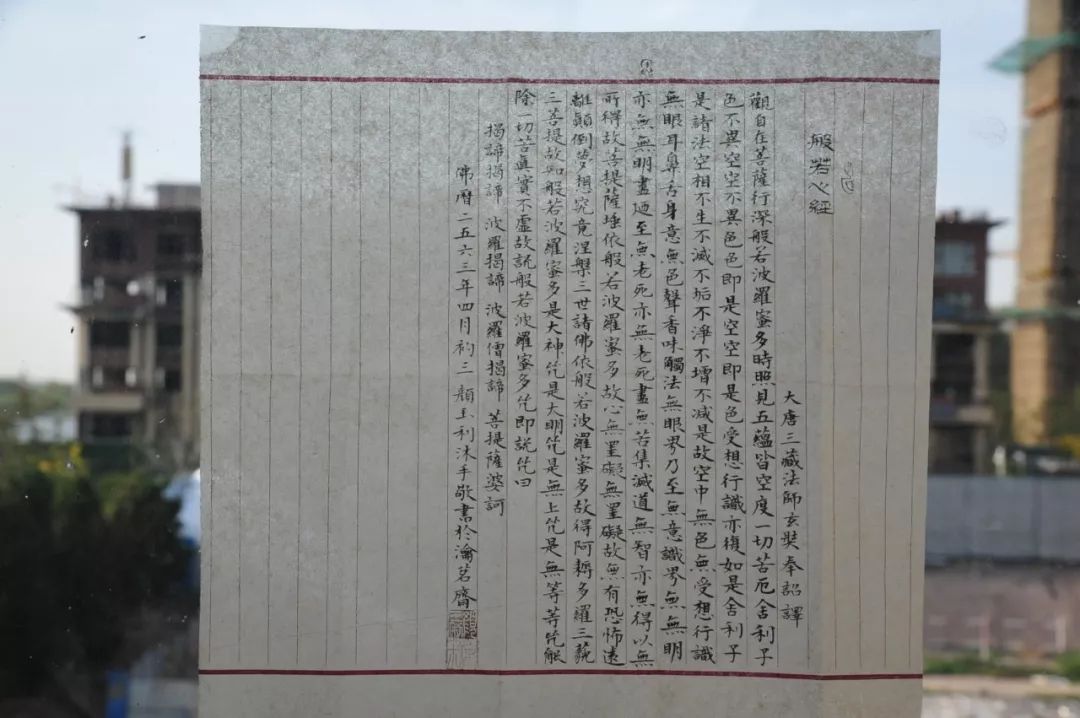 般若心經
大唐三藏法師玄奘奉詔譯
觀自在菩薩行深般若波羅蜜多時照見五蘊皆空度一切苦厄舍利子
色不異空空不異色色即是空空即是色受想行識亦復如是舍利子
是諸法空相不生不滅不垢不淨不增不減是故空中無色無受想行識
無眼耳鼻舌身意無色聲香味觸法無眼界乃至無意識界無無明
亦無無明盡乃至無老死亦無老死盡無苦集滅道無智亦無得以無
所得故菩提薩埵依般若波羅蜜多故心無罣礙無罣礙故無有恐怖遠
離顛倒夢想究竟涅槃三世諸佛依般若波羅蜜多故得阿耨多羅三藐
三菩提故知般若波羅蜜多是大神咒是大明咒是無上咒是無等等咒能
除一切苦真實不虛故說般若波羅蜜多咒即說咒曰
揭諦揭諦 波羅揭諦 波羅僧揭諦 菩提薩婆訶
佛曆二五六三年四月初三 顏玉利沐手敬書於瀹茗齋